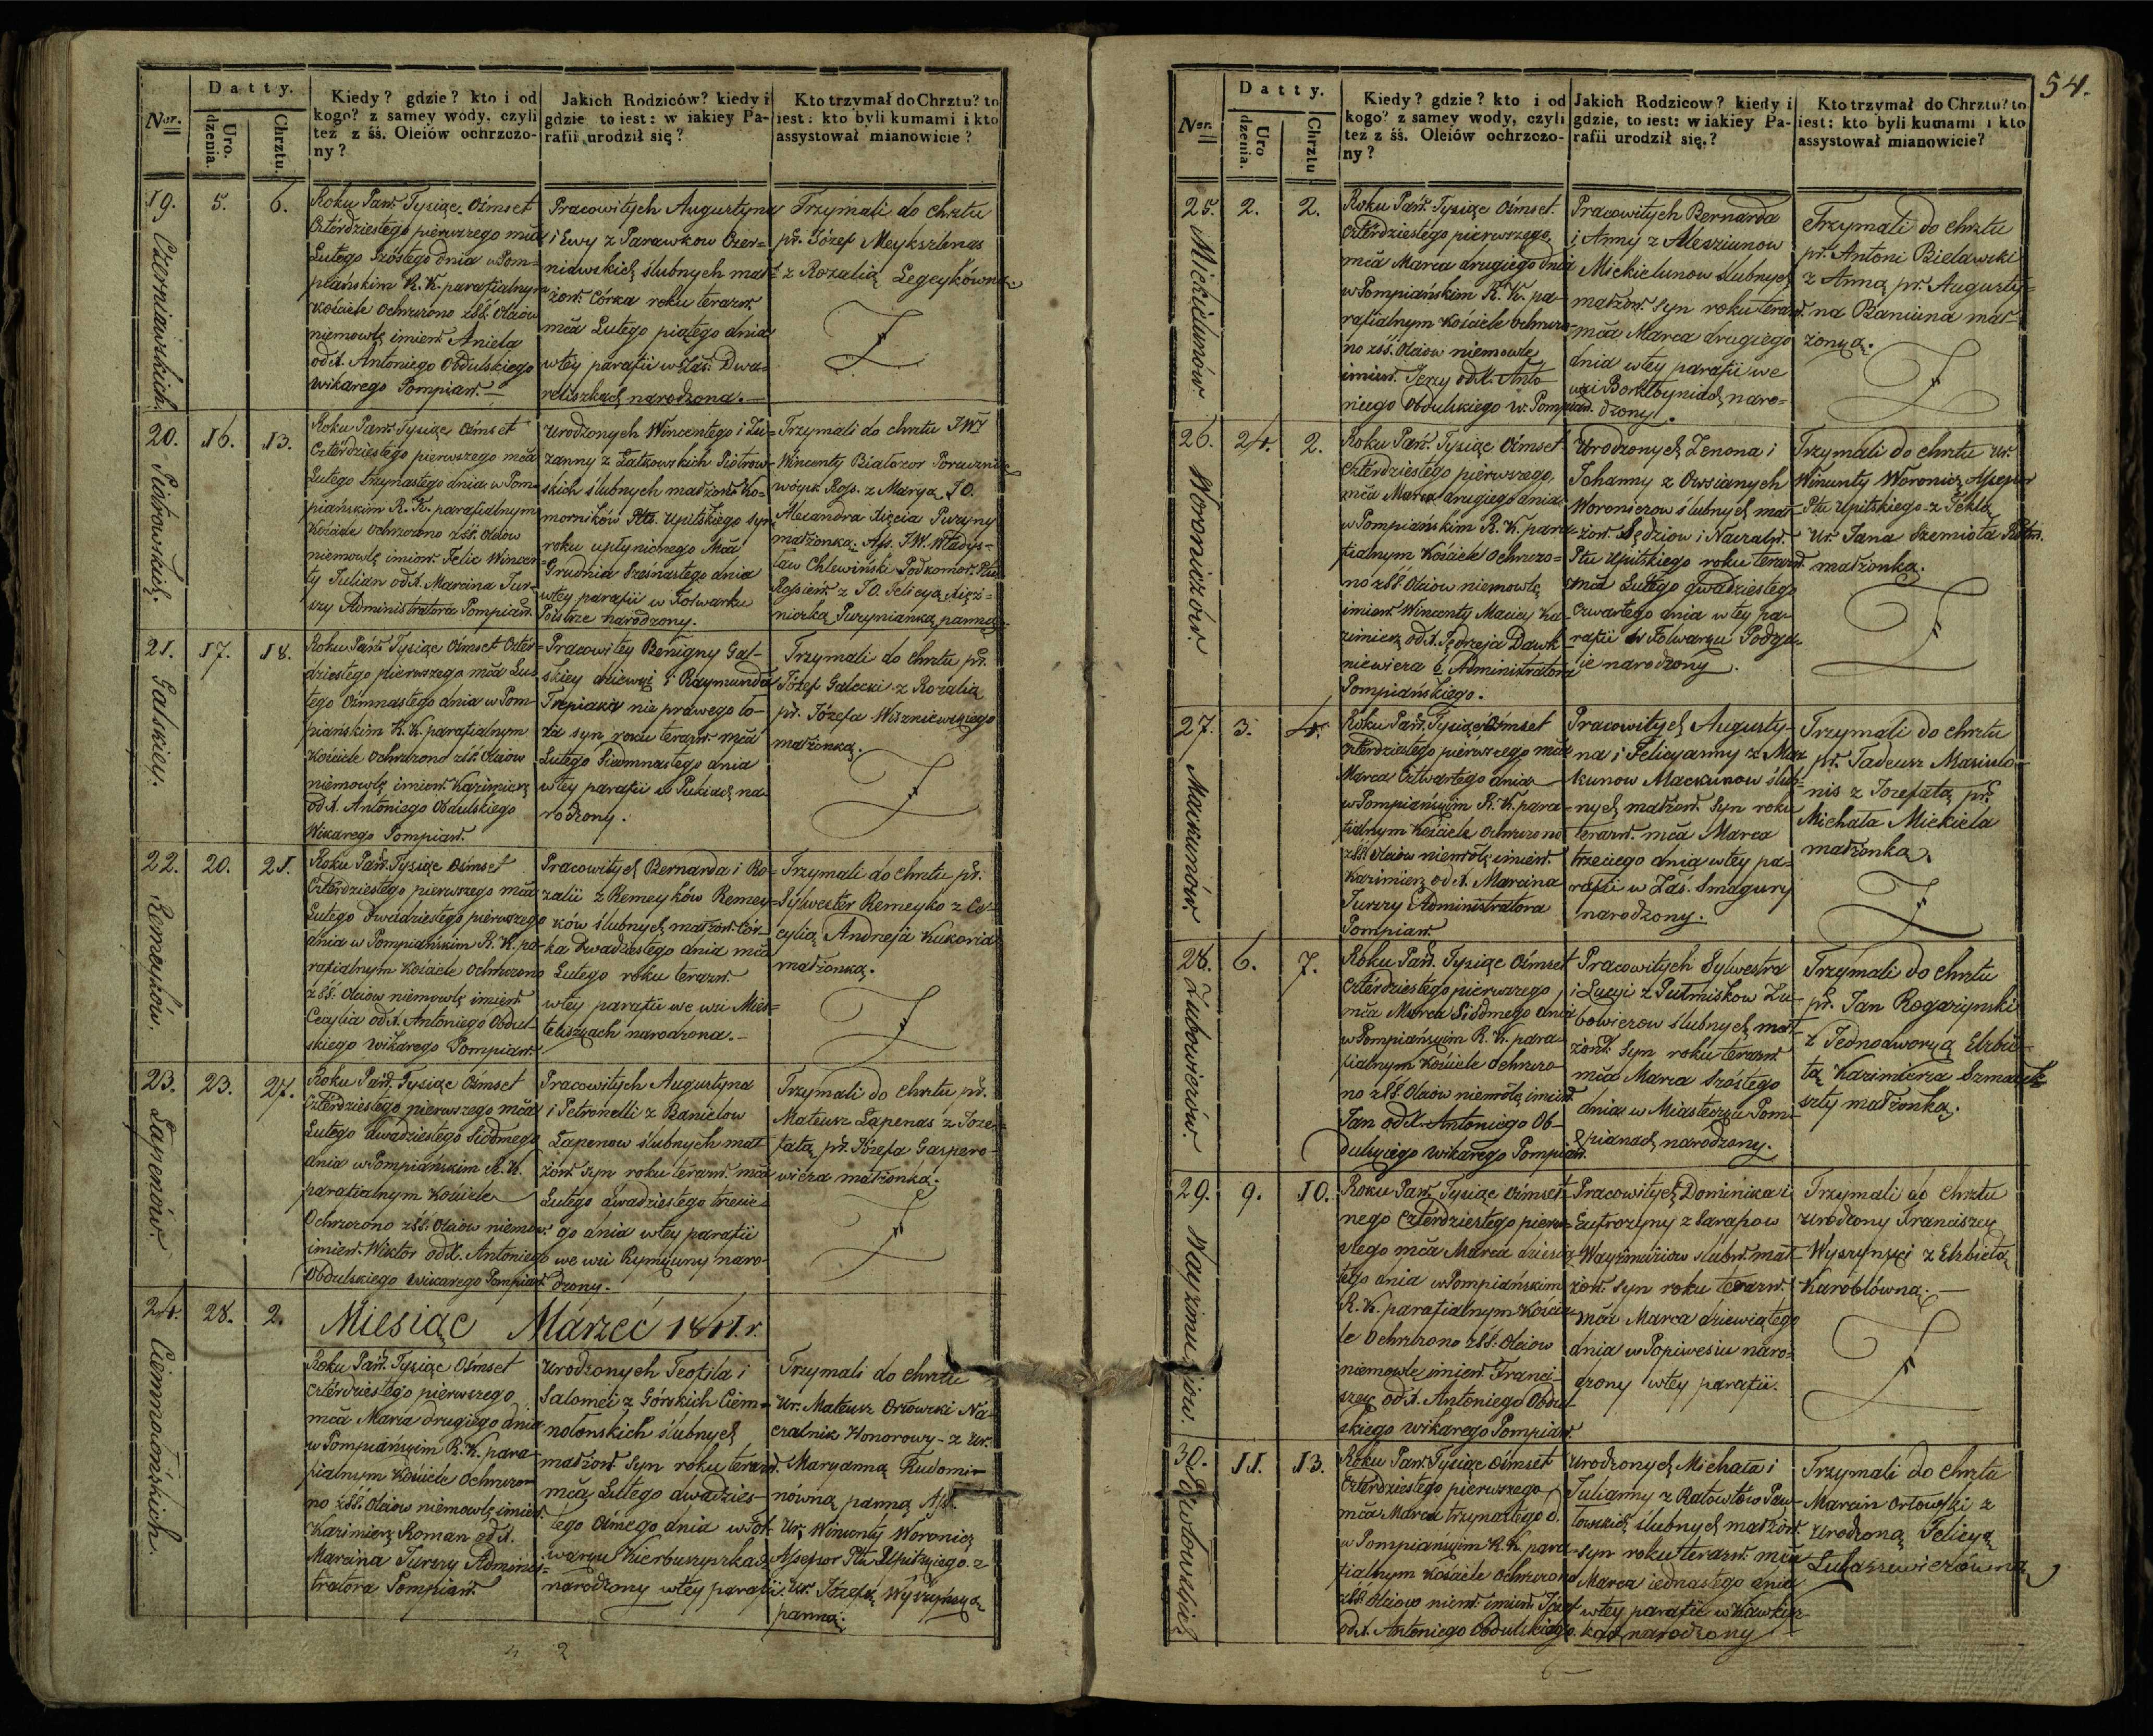 Datty.
Ner.
Uro.
dzenia.
Chrztu.
Kiedy? gdzie? kto i od
kogo? z samey wody, czyli
też z śś. Oleiów ochrzczo-
ny?
Jakich Rodziców? kiedy i
gdzie to iest: w iakiey Pa-
rafii urodził się?
Kto trzymał do Chrztu? to
iest: kto byli kumami i kto
assystował mianowicie?
19.
5.
6.
Czerniawskich.
Roku Pań. Tysiąc Ośmset
Czterdziestego pierwszego mca
Lutego Szóstego dnia w Pom-
piańskim R. K. parafialnym
Kościele Ochrzczono z śś. Oleiów
niemowlę imien. Aniela
od X. Antoniego Obdulskiego
Wikarego Pompiań.
Pracowitych Augustyna
i Ewy z Parawkow Czer-
niawskich ślubnych mał-
żon. Córka roku terazn.
mca Lutego piątego dnia
w tey parafii w Zaś. Dwa-
reliszkach narodzona.
Trzymali do chrztu
pr. Józef Meyksztenas
z Rozalią Legeykówną.
20.
16.
13.
Piotrowskich.
Roku Pań. Tysiąc Ośmset
Czterdziestego pierwszego mca
Lutego trzynastego dnia w Pom-
piańskim R. K. parafialnym
Kościele Ochrzczono z śś. Oleiów
niemowlę imion. Felic Wincen-
ty Julian od X. Marcina Jur-
szy Administratora Pompiań.
Urodzonych Wincentego i Zu-
zanny z Zatkowskich Piotrow-
skich ślubnych małżon. Ko-
morników Ptu. Upitskiego syn
roku upłynionego Mca
Grudnia Szesnastego dnia
w tey parafii w Folwarku
Poistrze narodzony.
Trzymali do chrztu JWJ
Wincenty Białozor Porucznik
woysk Ross. z Maryą J.O.
Alexandra Xięcia Puzyny
małżonką. Ass. J.W. Władys-
ław Chlewiński Podkomor. Ptu
Rossień. z J.O. Felicyą Xięż-
niczką Puzynianką panną.
21.
17.
18.
Galskiey.
Roku Pań. Tysiąc Ośmset Czter-
dziestego pierwszego mca Lu-
tego Ośmnastego dnia w Pom-
piańskim R. K. parafialnym
Kościele Ochrzczono z śś. Oleiów
niemowlę imien. Kazimierz
od X. Antoniego Obdulskiego
Wikarego Pompiań.
Pracowitey Benigny Gal-
skiey dziewki i Raymunda
Trepiaka nie prawego ło-
ża syn roku terazn. mca
Lutego Siedmnastego dnia
w tey parafii w Pukiach na-
rodzony.
Trzymali do chrztu pr.
Józef Galecki z Rozalią
pr. Józefa Wiszniewskiego
małżonką.
22.
20.
21.
Remeyków.
Roku Pań. Tysiąc Ośmset
Czterdziestego pierwszego mca
Lutego Dwudziestego pierwszego
dnia w Pompiańskim R. K. pa-
rafialnym Kościele Ochrzczono
z śś. Oleiów niemowlę imien.
Cecylia od X. Antoniego Obdul-
skiego Wikarego Pompiań.
Pracowitych Bernarda i Ro-
zalii z Remeyków Remey-
ków ślubnych małżon. Cór-
ka Dwudziestego dnia mca
Lutego roku terazn.
w tey parafii we wsi Mies-
teliszkach narodzona.
Trzymali do chrztu pr.
Sylwester Remeyko z Ce-
cylią Andrzeja Kukoria
małżonką.
23.
23.
27.
Łapenów.
Roku Pań. Tysiąc Ośmset
Czterdziestego pierwszego mca
Lutego dwudziestego Siódmego
dnia w Pompiańskim R. K.
parafialnym Kościele
Ochrzczono z śś. Oleiów niemow.
imien. Wiktor od X. Antoniego
Obdulskiego Wikarego Pompiań.
Pracowitych Augustyna
i Petronelli z Banielow
Łapenow ślubnych mał-
żon. Syn roku terazn. mca
Lutego dwudziestego trzecie-
go dnia w tey parafii
we wsi Rymkuny naro-
dzony.
Trzymali do chrztu pr.
Mateusz Łapenas z Joze-
fatą pr. Józefa Gaspero-
wicza małżonką.
24.
28.
2.
Ciemnołońskich.
Miesiąc Marzeć 1841 r.
Roku Pań. Tysiąc Ośmset
Czterdziestego pierwszego
mca Marca drugiego dnia
w Pompiańskim R. K. para-
fialnym Kościele Ochrzczo-
no z śś. Oleiów niemowlę imien.
Kazimierz Roman od X.
Marcina Jurszy Adminis-
tratora Pompiań.
Urodzonych Teofila i
Salomei z Górskich Ciem-
nołonskich ślubnych
małżon. Syn roku terazn.
mca Lutego dwudzies-
tego Osmego dnia w Fol-
warku Kierbuszyszkach
narodzony w tey parafii.
Trzymali do chrztu
Ur. Mateusz Orłowski Na-
czalnik Honorowy z Ur.
Maryanną Rudomi-
nówną panną Ass.
Ur. Wincenty Woronicz
Assesor Ptu Upitskiego z
Ur. Józefą Wyszyńską
panną.
54.
Datty.
Ner.
Uro
dzenia.
Chrztu
Kiedy? gdzie? kto i od
kogo? z samey wody, czyli
też z śś. Oleiów ochrzczo-
ny?
Jakich Rodzicow? kiedy i
gdzie, to iest: w iakiey Pa-
rafii urodził się.?
Kto trzymał do Chrztu? to
iest: kto byli kumami i kto
assystował mianowicie?
25.
2.
2.
Mickielunów.
Roku Pań. Tysiąc Ośmset
Czterdziestego pierwszego,
mca Marca drugiego dnia
w Pompiańskim R. K. pa-
rafialnym Kościele Ochrzczo-
no z śś. Oleiów niemowlę
imien. Jerzy od X. Anto-
niego Obdulskiego W. Pompiań.
Pracowitych Bernarda
i Anny z Aleszianow
Mickielunow ślubnych
małżon. Syn roku terazn.
mca Marca drugiego
dnia w tey parafii we
wsi Borkłoyniach naro-
dzony.
Trzymali do chrztu
pr. Antoni Bielawski
z Anną pr. Augusty-
na Baniuna mał-
żonką.
26.
24.
2.
Woroniczów.
Roku Pań. Tysiąc Ośmset
Czterdziestego pierwszego,
mca Marca drugiego dnia
w Pompiańskim R. K. para-
fialnym Kościele Ochrzczo-
no z śś. Oleiów niemowlę
imion. Wincenty Maciey Ka-
zimierz od X. Jędrzeja Dawk-
niewicza b. Administratora
Pompiańskiego.
Urodzonych Zenona i
Johanny z Owsianych
Woroniczow ślubnych mał-
żon. Sędziow i Naczaln.
Ptu Upitskiego roku terazn.
mca Lutego dwudziestego
czwartego dnia w tey pa-
rafii w Folwarku Podza-
ie narodzony.
Trzymali do chrztu Ur.
Wincenty Woronicz Assesor
Ptu Upitskiego z Teklą
Ur. Jana Szemiota
małżonką.
27.
3.
4.
Mackunów.
Roku Pań. Tysiąc Ośmset
Czterdziestego pierwszego mca
Marca Czwartego dnia
w Pompiańskim R. K. para-
fialnym Kościele Ochrzczono
z śś. Oleiów niemowlę imien.
Kazimierz od X. Marcina
Jurszy Administratora
Pompiań.
Pracowitych Augusty-
na i Felicyanny z Mac-
kunow Mackunow ślub-
nych małżon. Syn roku
terazn. mca Marca
trzeciego dnia w tey pa-
rafii w Zaś. Smagury
narodzony.
Trzymali do chrztu
pr. Tadeusz Masiulo-
nis z Jozefatą pr.
Michała Mickiela
małżonką.
28.
6.
7.
Zubowiczów.
Roku Pań. Tysiąc Ośmset
Czterdziestego pierwszego
mca Marca Siódmego dnia
w Pompiańskim R. K. para-
fialnym Kościele Ochrzczo-
no z śś. Oleiów niemowlę imien.
Jan od X. Antoniego Ob-
dulskiego wikarego Pompiań.
Pracowitych Sylwestra
i Łucyi z Putmiskow Zu-
bowiczow ślubnych mał-
żon. Syn roku terazn.
mca Marca Szóstego
dnia w Miasteczku Pom-
pianach narodzony.
Trzymali do chrztu
pr. Jan Rogazynski
z Jednodworką Elżbie-
tą Kazimierza
małżonką.
29.
9.
10.
Roku Pań. Tysiąc Ośmset
nego Czterdziestego pierw-
szego mca Marca dziesią-
tego dnia w Pompiańskim
R. K. parafialnym Koście-
le Ochrzczono z śś. Oleiów
niemowlę imien. Franci-
szek od X. Antoniego Obdul-
skiego wikarego Pompiań.
Pracowitych Dominika i
Eufrozyny z Sarapow
ślubn. mał-
żon. Syn roku terazn.
mca Marca dziewiątego
dnia w Popiwesiu naro-
dzony w tey parafii.
Trzymali do chrztu
Urodzony Franciszek
Wyszyński z Elżbietą
Karoblówną.
30.
11.
13.
Pawłowskich
Roku Pań. Tysiąc Ośmset
Czterdziestego pierwszego
mca Marca trzynastego d.
w Pompiańskim R. K. para-
fialnym Kościele Ochrzczono
z śś. Oleiów niem. imien. Józef
od X. Antoniego Obdulskiego.
Urodzonych Michała i
Julianny z Ratowtow Paw-
łowskich ślubnych małżon.
Syn roku terazn. mca
Marca iednastego dnia
w tey parafii w Kawkisz-
kach narodzony
Trzymali do chrztu
Marcin Orłowski z
Urodzoną Felicyą
Łukaszewiczówną